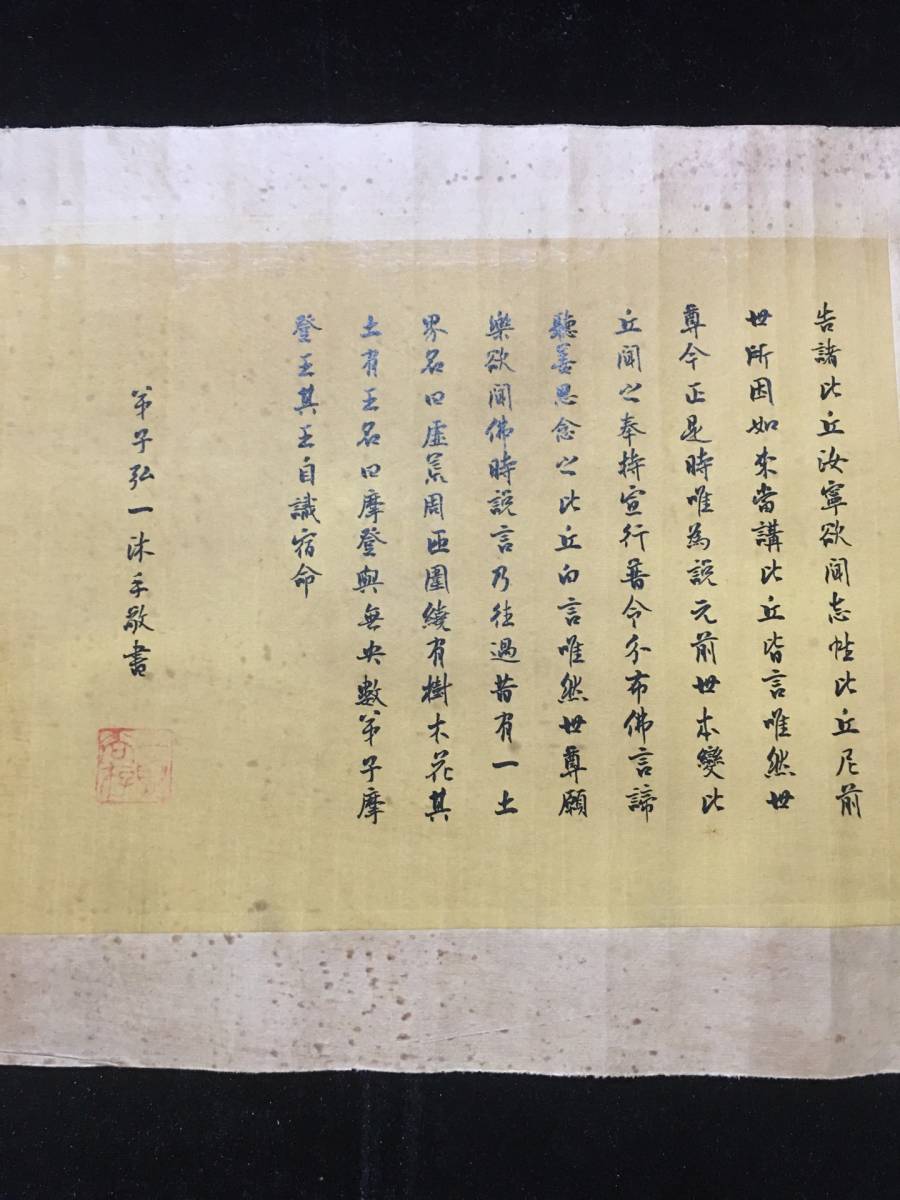 告諸比丘汝寧欲聞志性比丘尼前
世所因如来當講比丘皆言唯然世
尊今正是時唯為說元前世本變比
丘聞之奉持宣行普令分布佛言諦
聽善思念之比丘白言唯然世尊願
樂欲聞佛時說言乃往過昔有一土
界名曰虛荒周匝圍繞有樹木花其
土有王名曰摩登與無央數弟子摩
登王其王自識宿命
弟子弘一沐手敬書